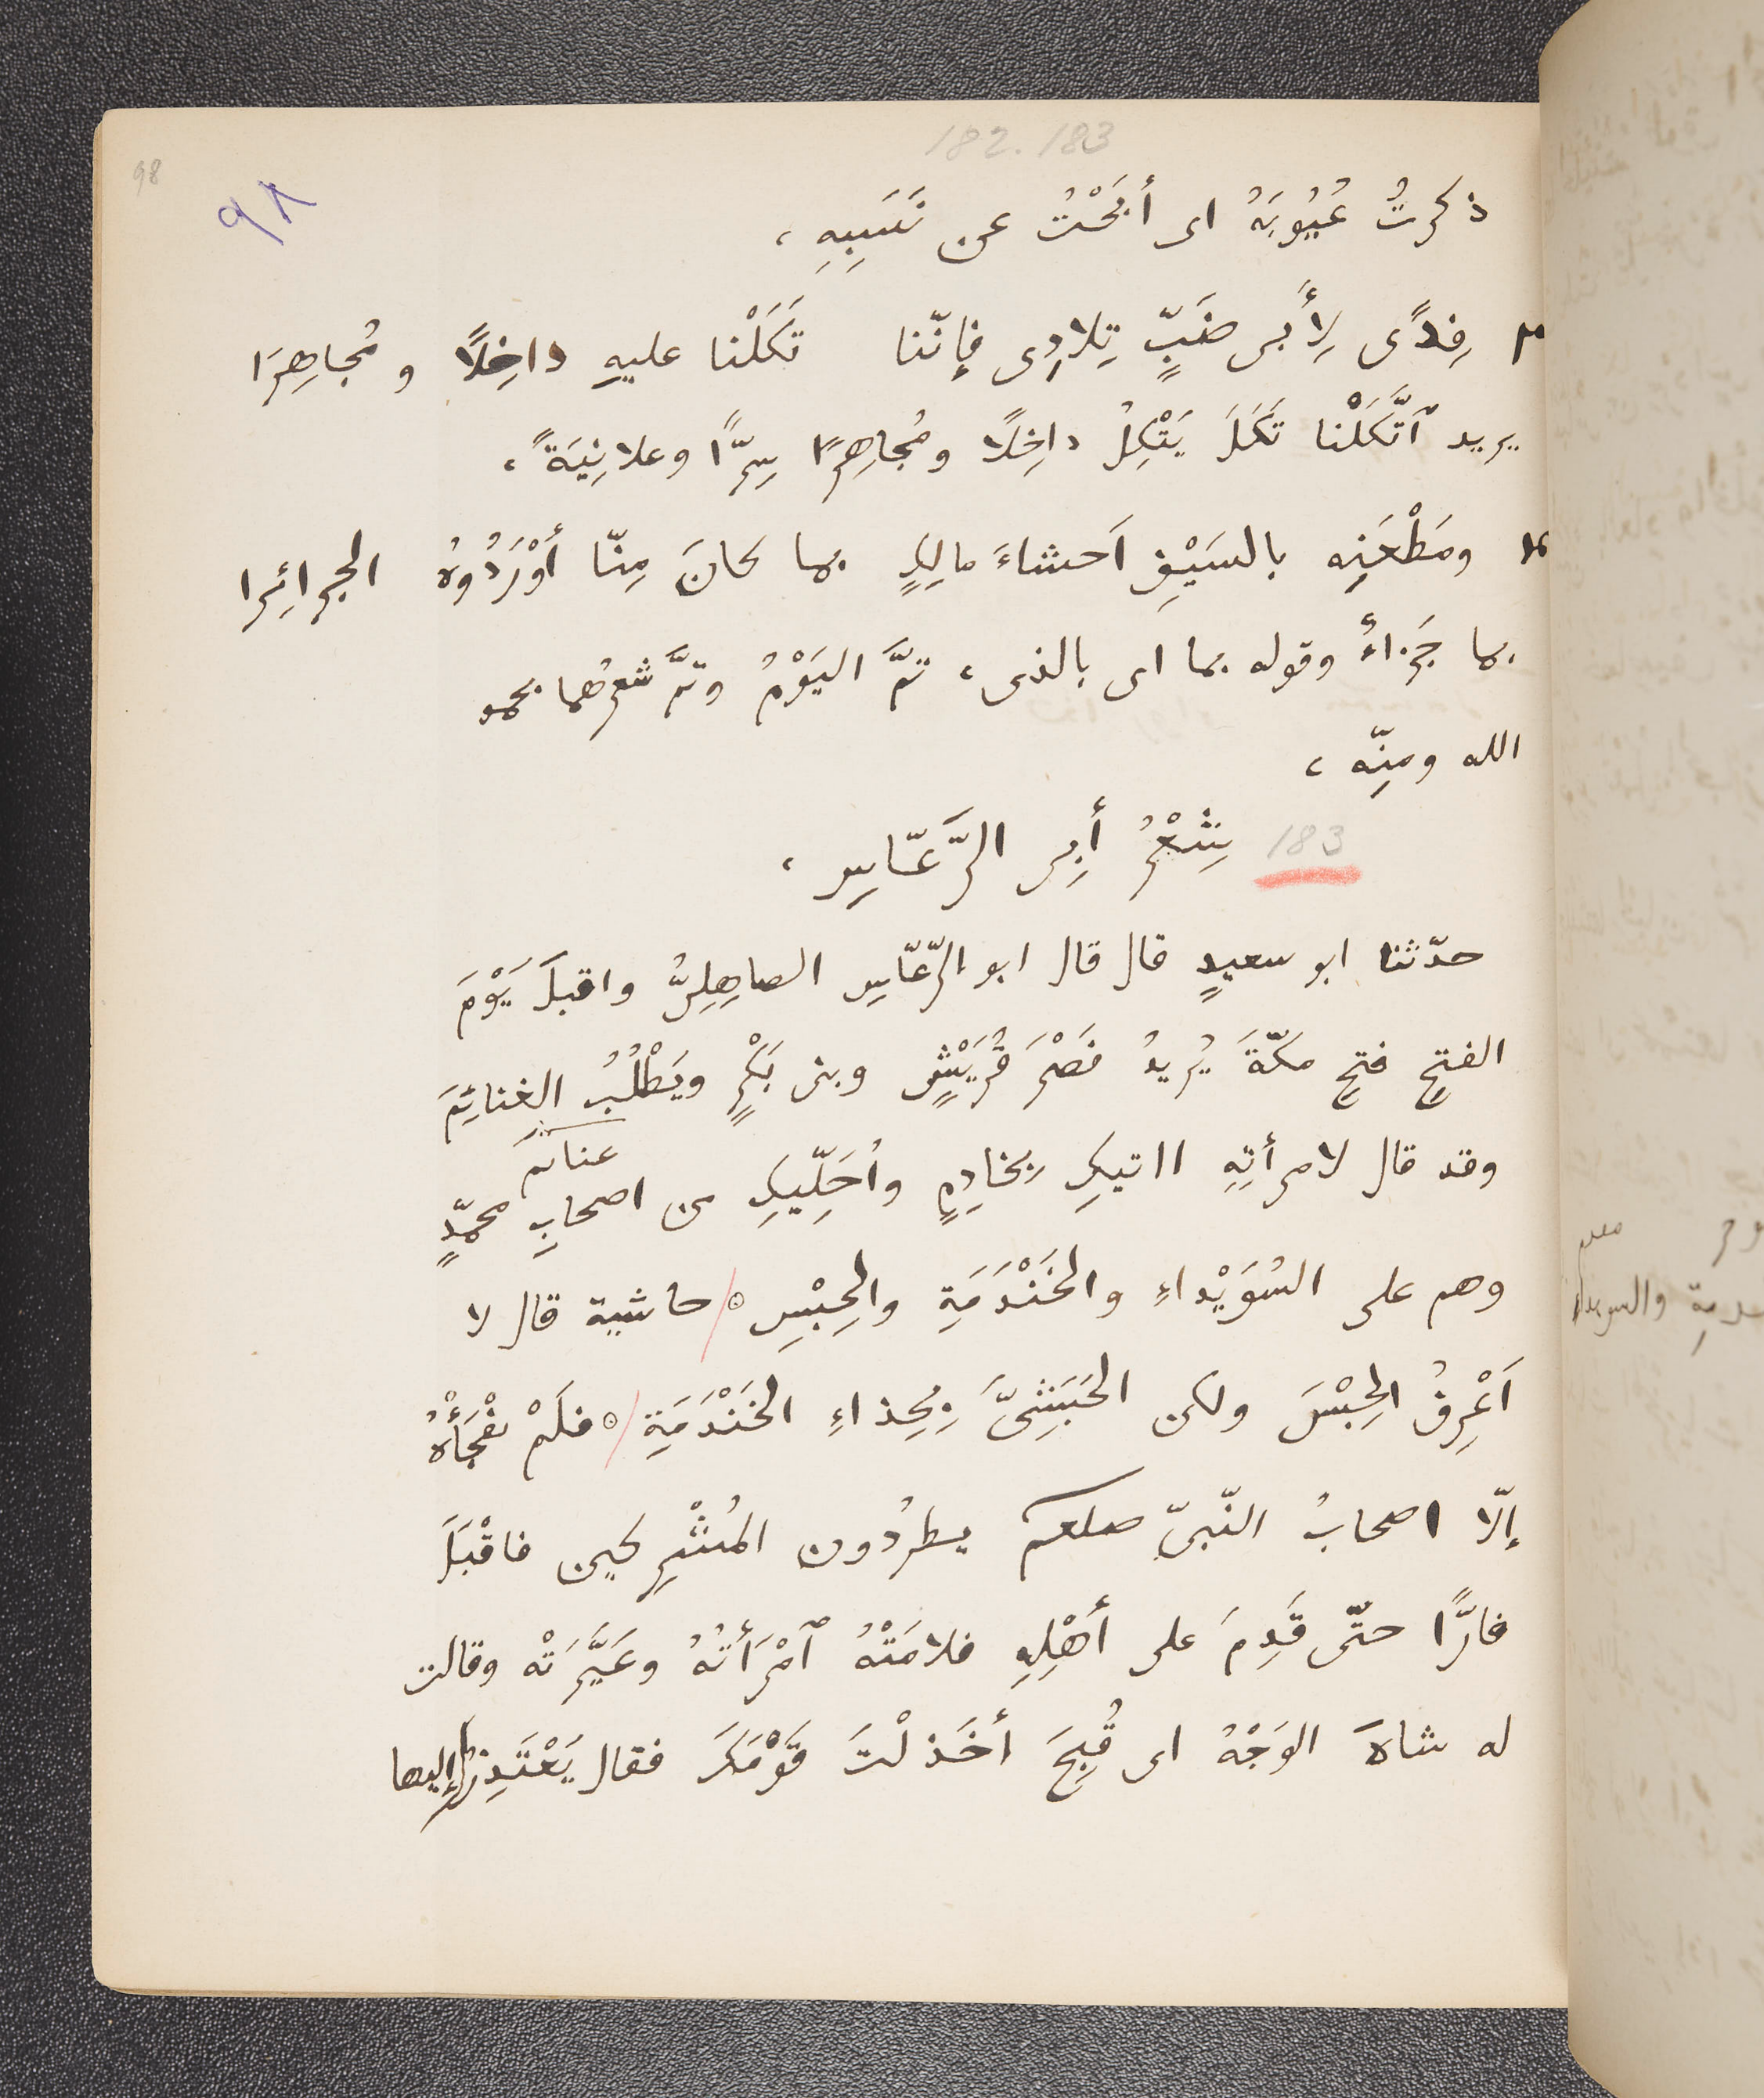 182.183
98
٩٨
ذكرتُ عُيُوبَهُ اى أبْحَثْتُ عن نَسَبِهِ ،
٣ فِدًى لِأَبى ضَبٍّ تِلادِى فإنّنا تَكَلْنا عليهِ داخِلًا و مُجاهِرَا
يريد ٱتَّكَلْنا تَكَلَ يَتْكِلُ داخِلًا ومُجاهِرًا سِرًّا وعلانِيَةً ،
٤ ومَطْعَنِه بالسَيْفِ اَحشاءَ مالِكٍ بما كانَ مِنّا أَوْرَدُوهُ الجرائِرا
بما جَزاءُ وقوله بما اى بالذى ، تمَّ اليَوْمُ وتمَّ شعرُهما بحمد
الله ومنِّه ،
183 شِعْرُ أبِى الرَّعّاسِ ،
حدّثنا ابو سعيدٍ قال قال ابو الرّعّاسِ الصاهِلِىُّ واقبلَ يَوْمَ
الفتحِ فتحِ مكّةَ يُريدُ نَصْرَ قُرَيْشٍ وبنى بَكْرٍ ويَطْلُبُ الغنائِمَ
غنائم
وقد قال لامرأتِهِ ااتيكِ بخادِمٍ واُحَلِّيكِ من اصحابِ محمّدٍ
وهم على السُوَيْداءِ والخَنْدَمَةِ والحِبْسِ ⊙ حاشية قال لا
اَعْرِفُ الحِبْسَ ولكن الحَبَشِىَّ بِحِذاءِ الخَنْدَمَةِ ⊙ فلَمْ يفْجَأْهُ
إلّا اصحابُ النّبىّ صلعم يطرُدُون المُشْرِكين فاقْبَلَ
فارًّا حتّى قَدِمَ على أهْلِهِ فلامَتْهُ ٱمْرَأتُهُ وعَيَّرَتْه وقالت
له شاهَ الوَجْهُ اى قُبِحَ أخَذلْتَ قَوْمَكَ فقال يَعْتَذِرُ إليها